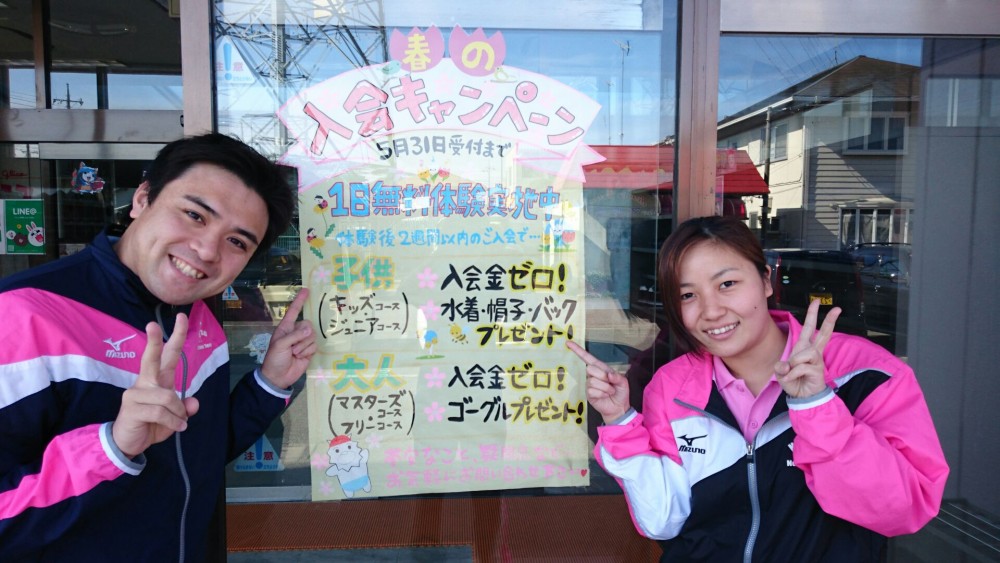 春の
入会キャンペーン
5月31日受付まで
1日無料体験実施中
体験後2週間以内のご入会で…
子供
(キッズコース
ジュニアコース)
入会金ゼロ!
水着・帽子・バック
プレゼント!
大人
(マスターズコース
フリーコース)
入会金ゼロ!
ゴーグルプレゼント!
LINE@
注意
MIZUNO
MIZUNO